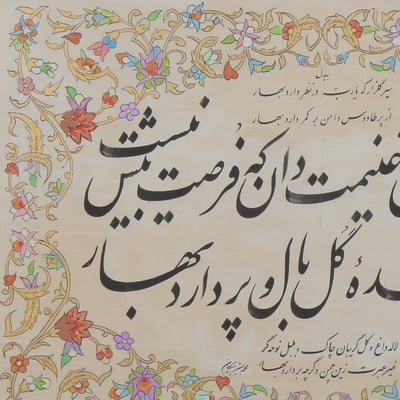 بیدل
سیر گلزار که یارب در نظر دارد بهار
از پر طاووس دامن بر کمر دارد بهار
غنیمت دان که فرصت بیش نیست
دهٔ گل بال و پر دارد بهار
لاله داغ و گل گریبان چاک و بلبل نوحه گر
غیر عبرت زین چمن دیگر چه بردارد بهار